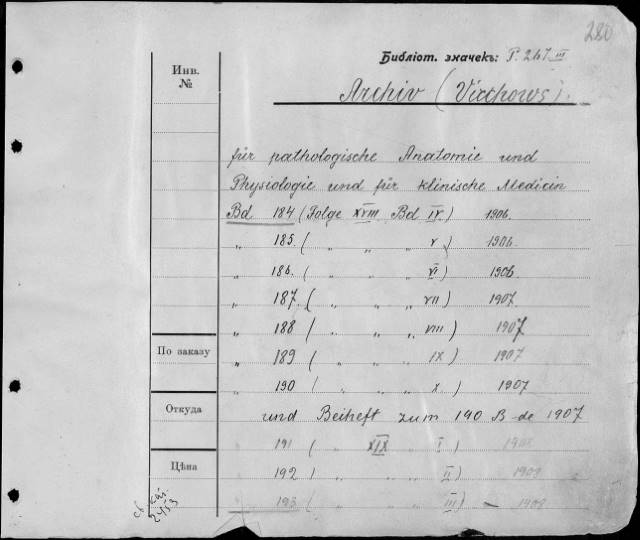 280
Библіот. значекъ: P. 247 III
Инв.
№
Archiv (Virchows).
für pathologische Anatomie und
Physiologie und für klinische Medicin
Bd 184 (Folge XVIII Bd IV) 1906.
„ 185. ( „ „ „ V ) 1906.
„ 186. ( „ „ „ VI ) 1906
„ 187. ( „ „ „ VII ) 1907
„ 188 ( „ „ „ VIII ) 1907
По заказу
„ 189 ( „ „ „ IX ) 1907
„ 190 ( „ „ „ X ) 1907
Откуда
und Beiheft zum 190 B-de 1907
„ 191 ( „ XIX „ I ) 1908
Цѣна
„ 192 ( „ „ „ II ) 1908
„ 193 ( „ „ „ III ) – 1908
св. кат.
2453